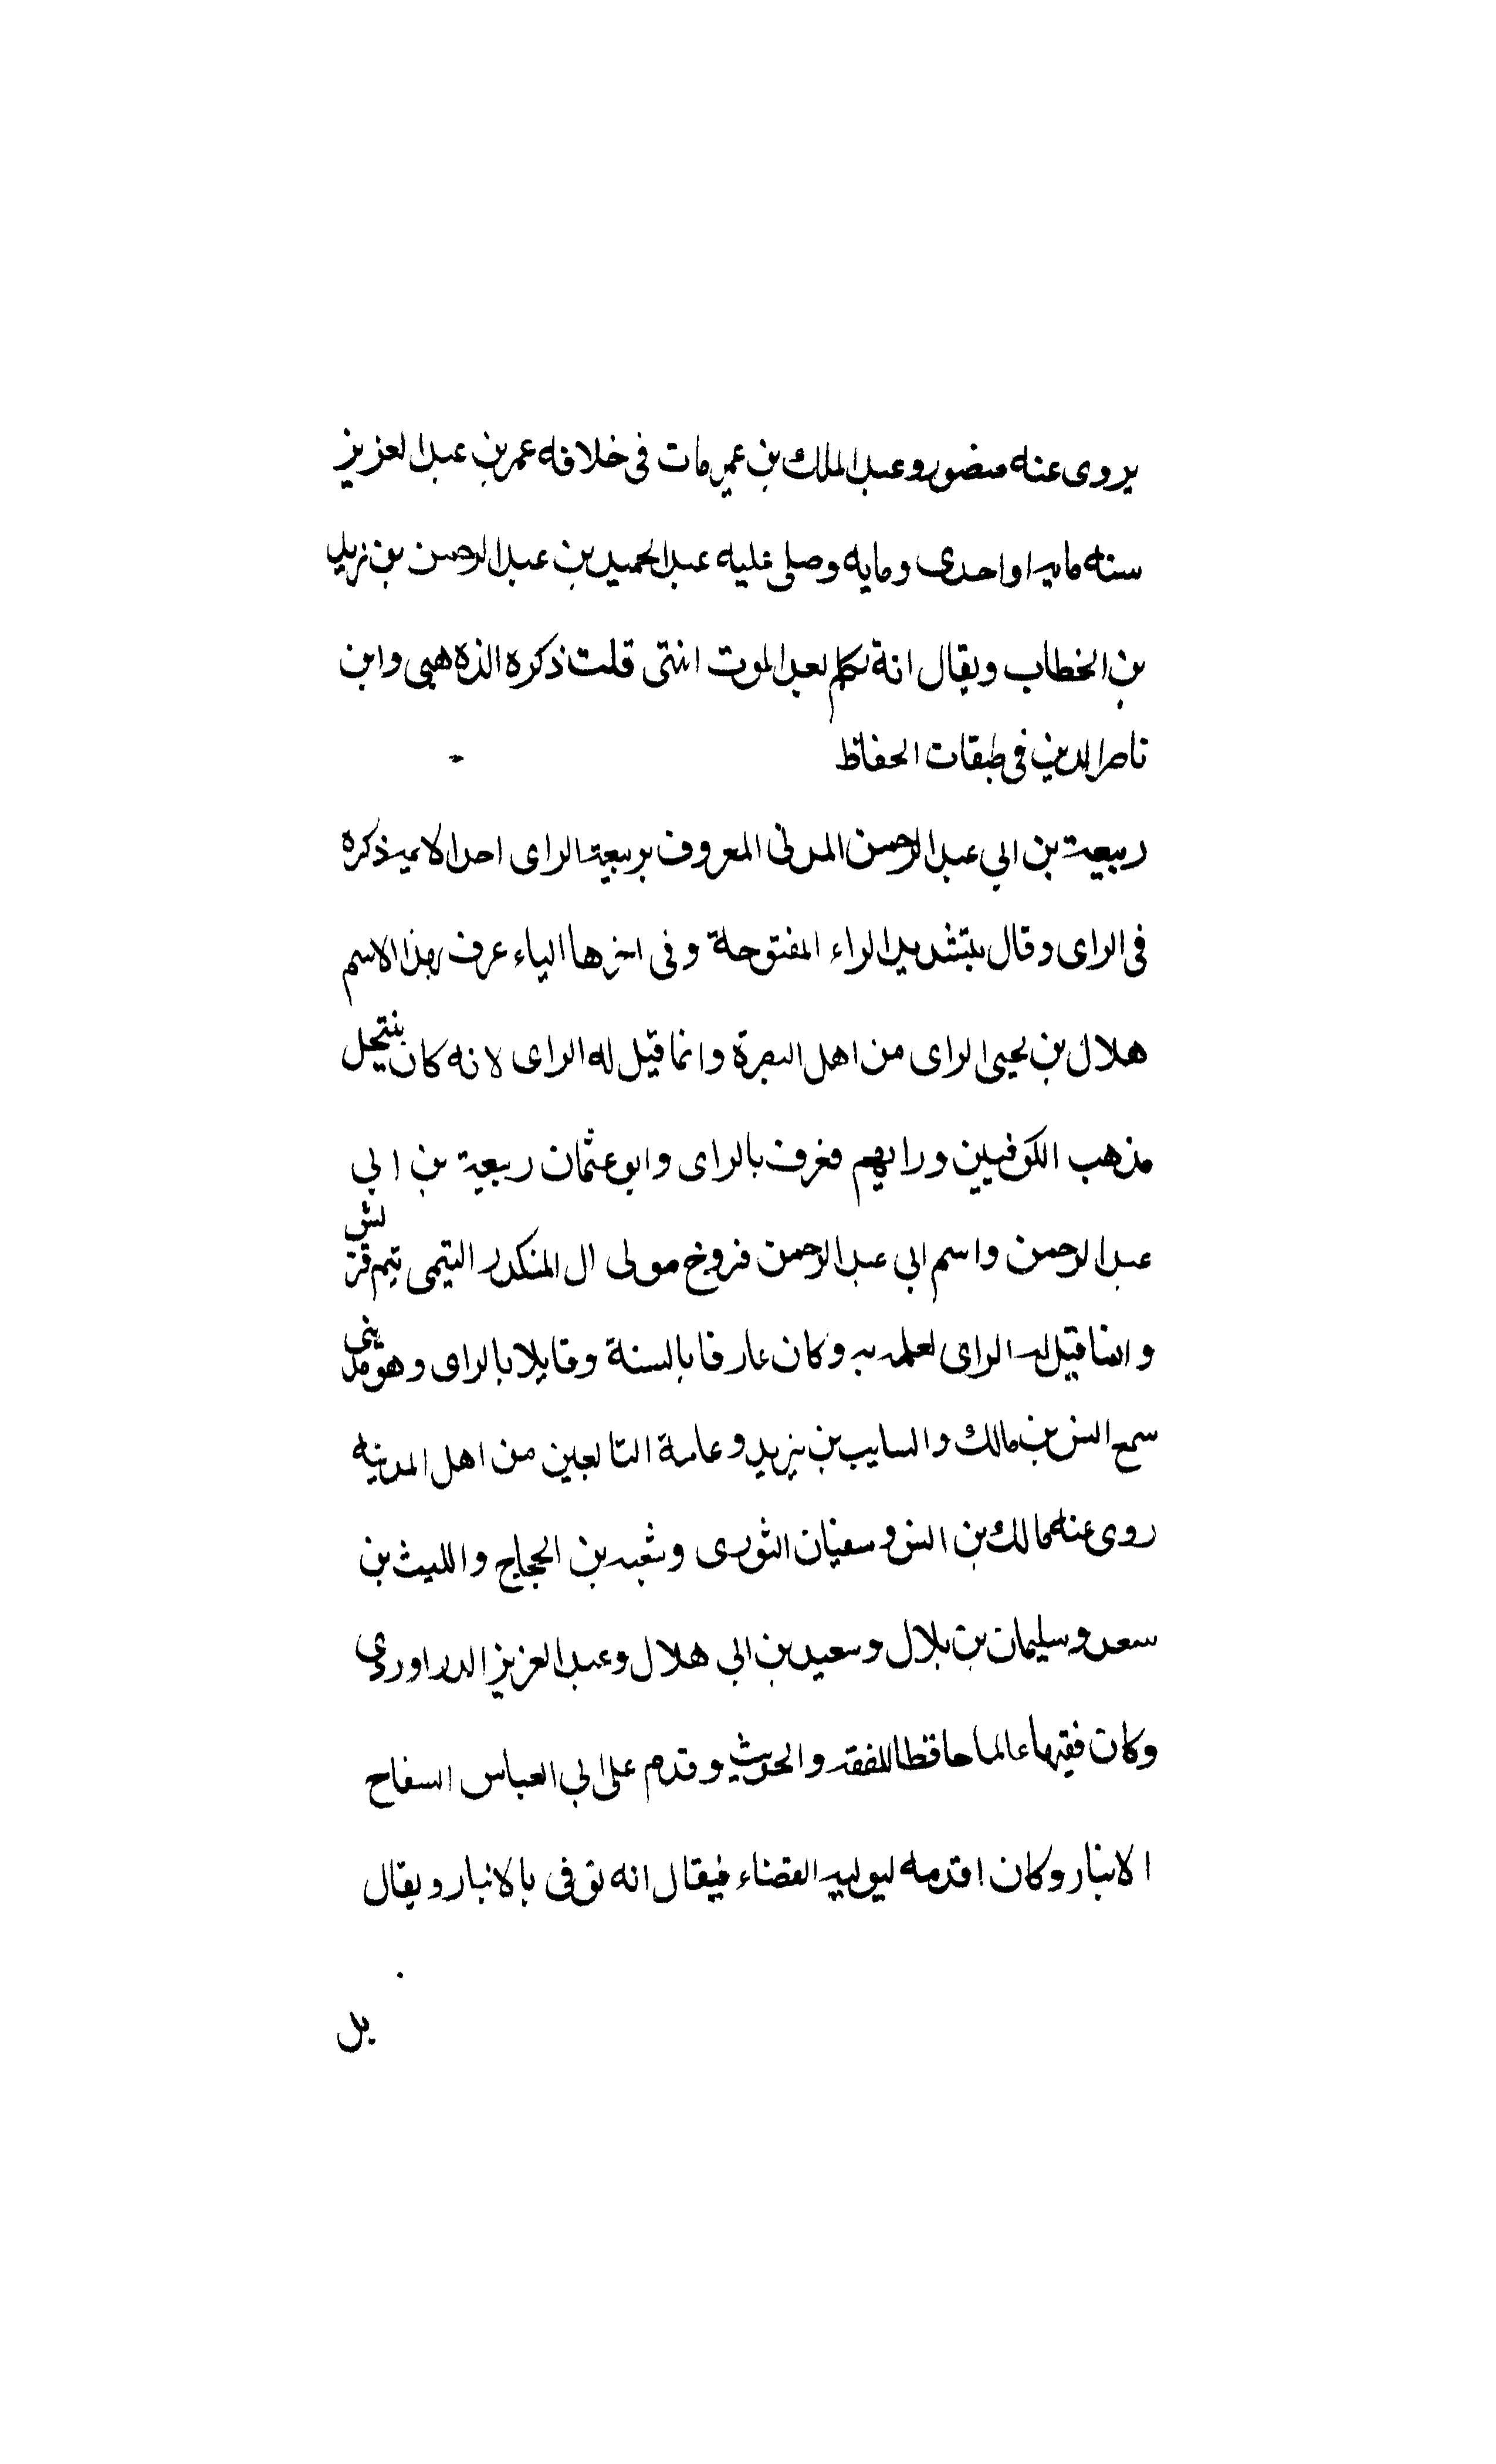 يروى عنه منصور وعبد الملك بن عمير مات فى خلافه عمر بن عبد العزيز
سنه مايه او احدى ومايه وصلى عليه عبد الحميد بن عبد الرحمن بن زيد
بن الخطاب ويقال انة تكلم بعد الموت انتى قلت ذكره الذهبى وابن
ناصر الدين فى طبقات الحفاظ
ربيعة بن ابي عبد الرحمن المدنى المعروف بربيعة الراى احد الايمة ذكره
فى الراى وقال بتشديد الراء المفتوحة وفى اخرها الياء عرف بهذا الاسم
هلال بن يحيى الراى من اهل البصرة وانما قيل له الراى لانه كان ينتحل
مذهب الكوفيين ورايهم فعرف بالراى وابو عثمان ربيعة بن ابي
عبد الرحمن واسم ابى عبد الرحمن فروخ مولى ال المنكدر التيمى تيم قريش
وانما قيل له الراى لعلمه به وكان عارفا بالسنة وقايلا بالراى وهو مدينى
سمع انس بن مالك والسايب بن يزيد وعامة التابعين من اهل المدينه
روى عنه مالك بن انس وسفيان الثورى وشعبه بن الحجاج والليث بن
سعد وسليمان بن بلال وسعيد بن ابى هلال وعبد العزيز الدراوردى
وكان فقيها عالما حافظا للفقه والحديث وقدم على ابي العباس السفاح
الانبار وكان اقدمه ليوليه القضاء فيقال انه توفى بالانبار ويقال
بل